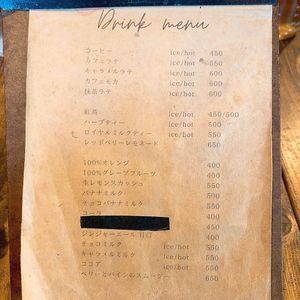 Drink menu
コーヒー ice/hot 450
カフェラテ ice/hot 550
キャラメルラテ ice/hot 600
カフェモカ ice/hot 600
抹茶ラテ ice/hot 600
紅茶 ice/hot 450/500
ハーブティー ice/hot 500
ロイヤルミルクティー ice/hot 550
レッドベリーレモネード 650
100%オレンジ 400
100%グレープフルーツ 400
生レモンスカッシュ 550
バナナミルク 500
チョコバナナミルク 550
コーラ 400
400
ジンジャーエール 甘口 400
チョコミルク ice/hot 550
キャラメルミルク ice/hot 550
ココア ice/hot 550
ベリーとパインのスムージー 650